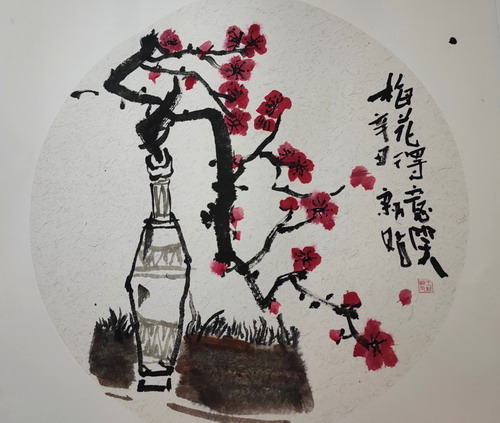 梅花得意笑
辛丑 新